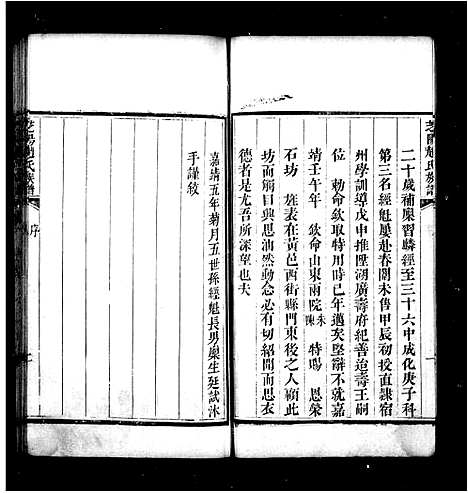 芝陽趙氏族譜
二十歲補廩習麟經至三十六中成化庚子科
第三名經魁屢赴春闈未售甲辰初授直隸宿
州學訓導戊申推陞湖廣壽府紀善迨壽王嗣
位　勅命欽取特用時已年邁矣堅辭不就嘉
靖壬午年　欽命山東兩院朱陳　特賜　恩榮
石坊　旌表在黃邑西街縣門東後之人其登
坊而觸目興思油然動念必有紹聞而思衣
德者是尤吾所深望也夫
嘉靖五年菊月五世孫經魁長男廩生延試沐
手謹敘
芝陽趙氏族譜
序